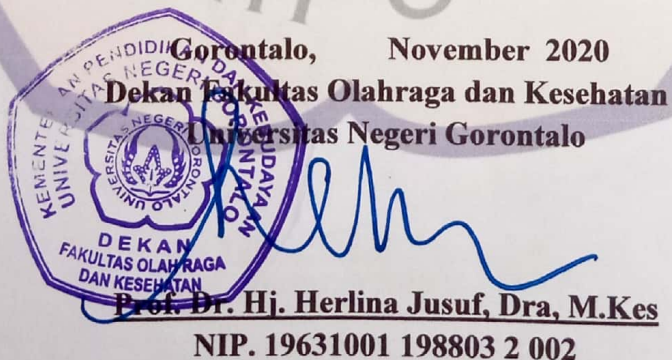 Gorontalo, November 2020
Dekan Fakultas Olahraga dan Kesehatan
Universitas Negeri Gorontalo
KEMENTERIAN PENDIDIKAN DAN KEBUDAYAAN
UNIVERSITAS NEGERI GORONTALO
UNIVERSITAS NEGERI GORONTALO
DEKAN
FAKULTAS OLAHRAGA
DAN KESEHATAN
Prof. Dr. Hj. Herlina Jusuf, Dra, M.Kes
NIP. 19631001 198803 2 002